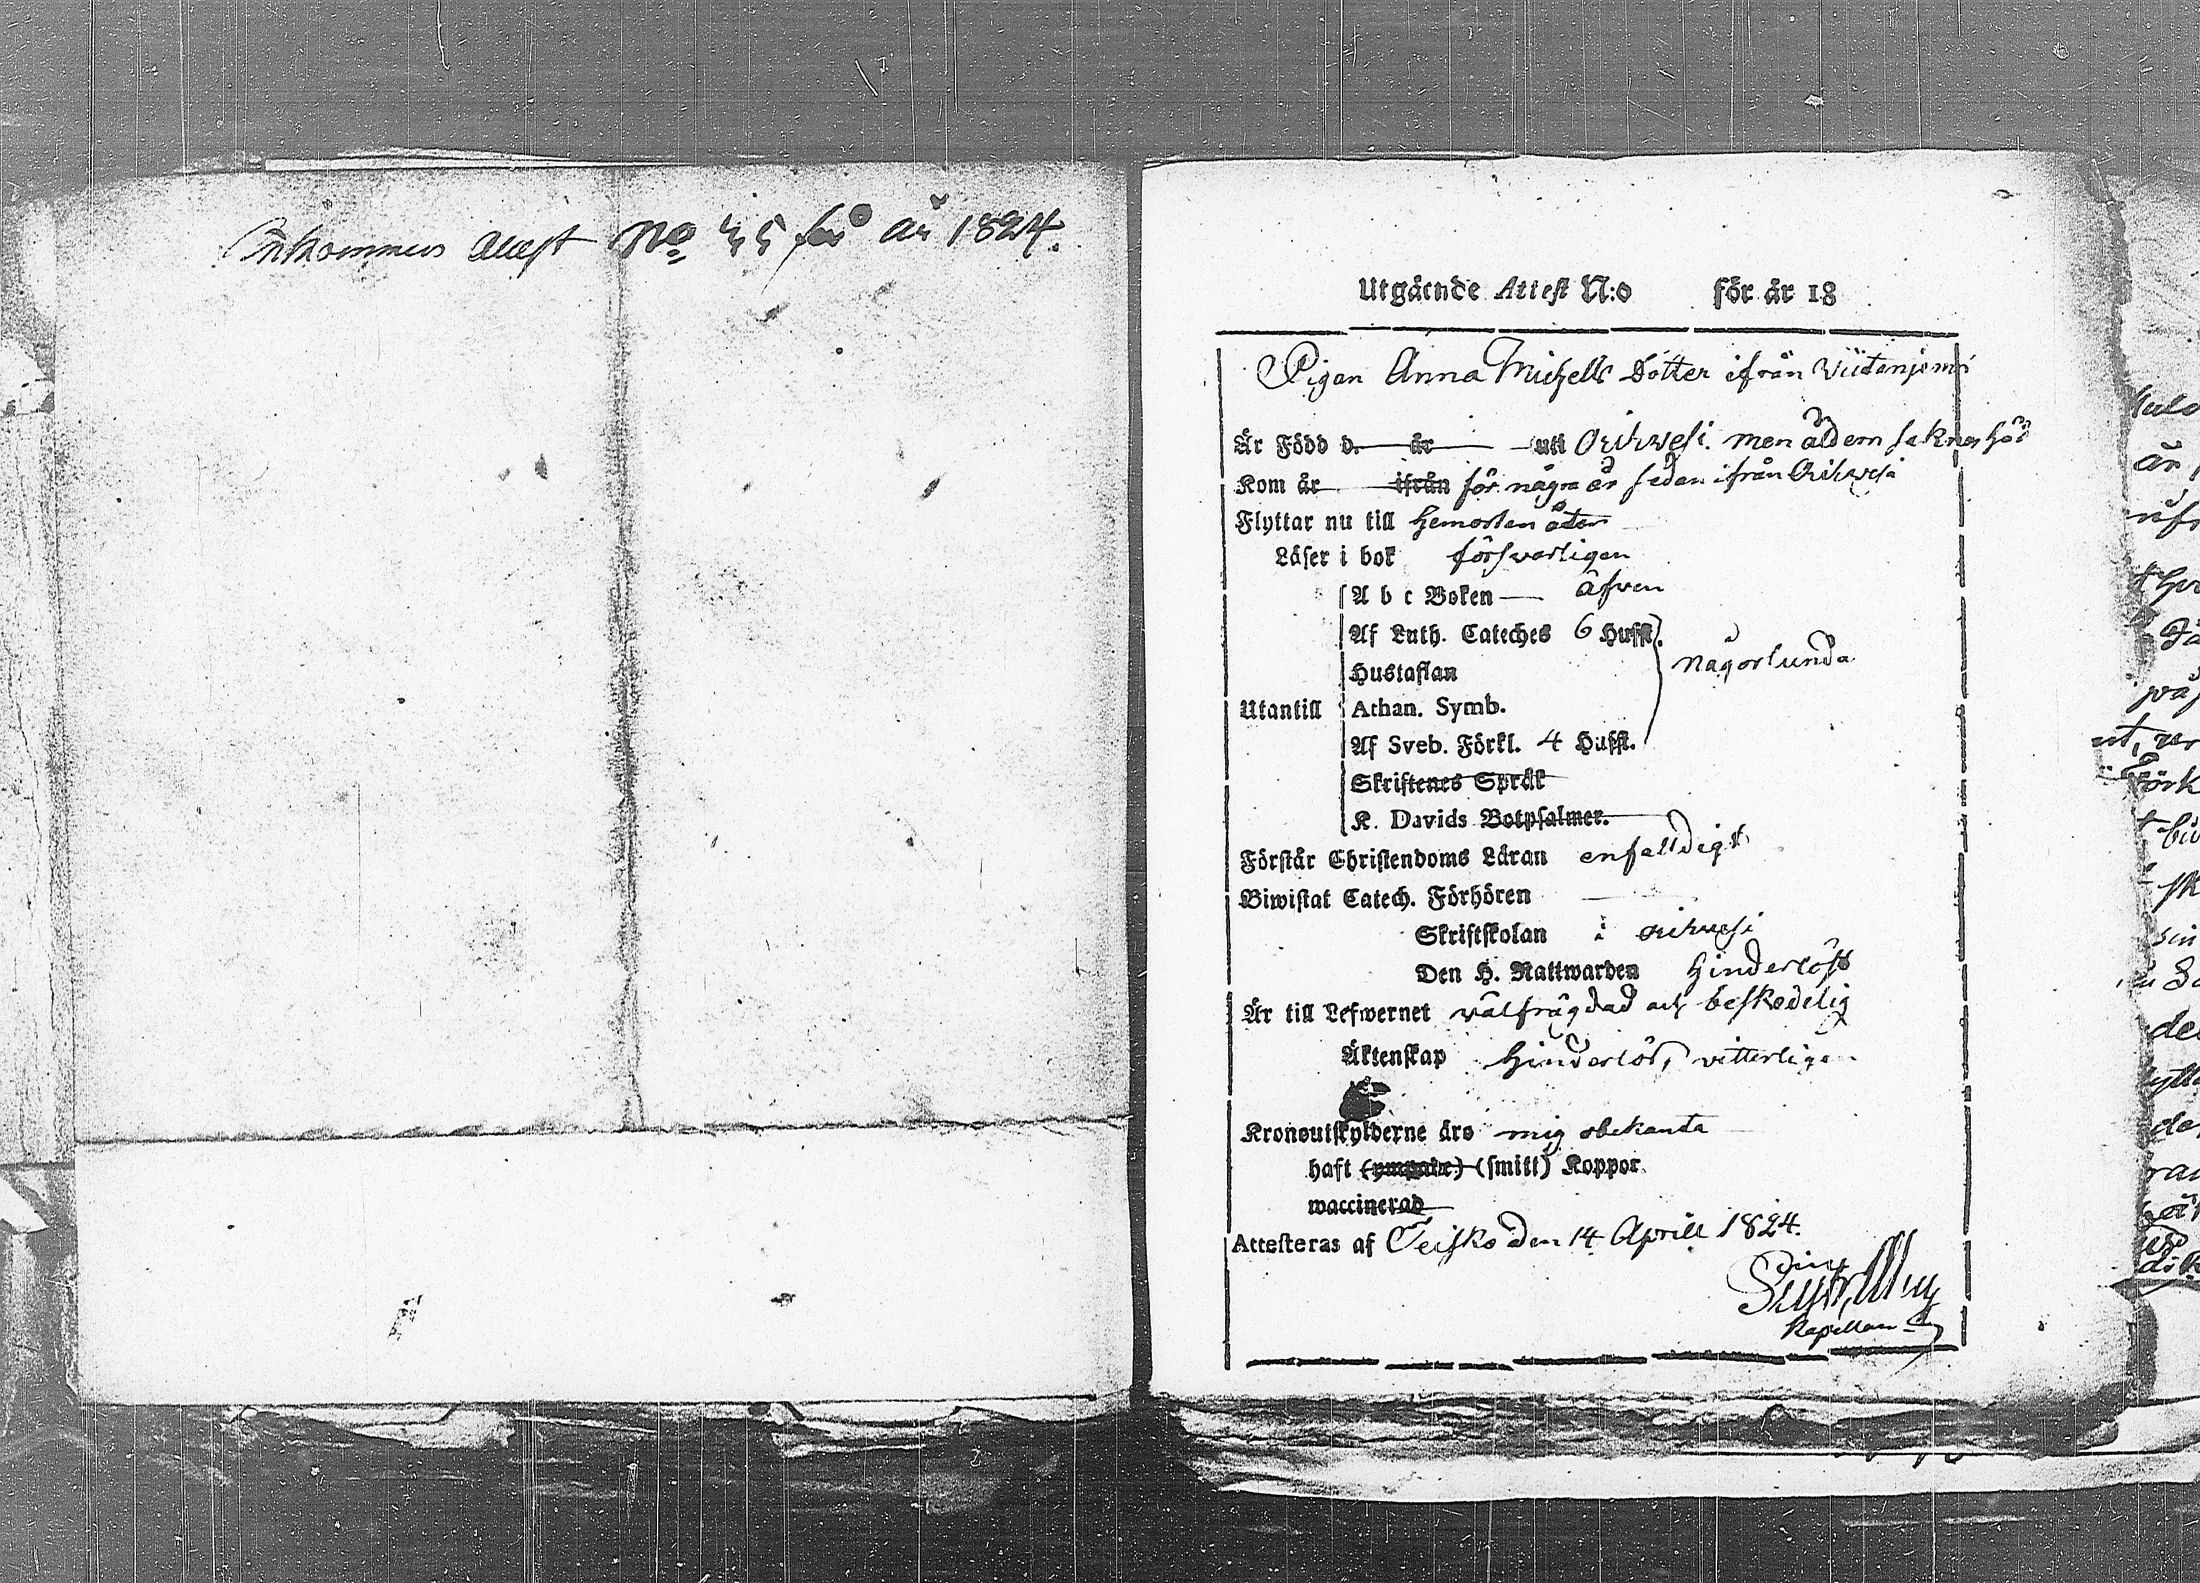 Inkommen Attest No 35 för år 1824.
Utgående Attest N:o för år 18
Pigan Anna Michells Dotter ifrån Viitaniemi
Är Född d. år uti Orihvesi. men åldern saknas hos
Kom år ifrån för några år sedan ifrån Orihvesi
Flyttar nu till hemorten åter
Läser i bok försvarligen
A b c Boken äfven
Af Luth. Cateches 6 Hufst.
Hustaflan
någorlunda
Utantill Athan. Symb.
Af Sveb. Förkl. 4 Hufst.
Skriftenes Språk
K. Davids Botpsalmer.
Förstår Christendoms Läran enfalldigt
Biwistat Catech. Förhören
Skriftskolan i Orihvesi
Den H. Nattwarden hinderlöst
Är till Lefwernet välfrägdad och beskedelig
Äktenskap hinderlös, vitterligen
Kronoutskylderne äro mig obekanta
haft (ympade) (smitt) Koppor
waccinerad
Attesteras af Teisko den 14 Aprill 1824.
Kapellan